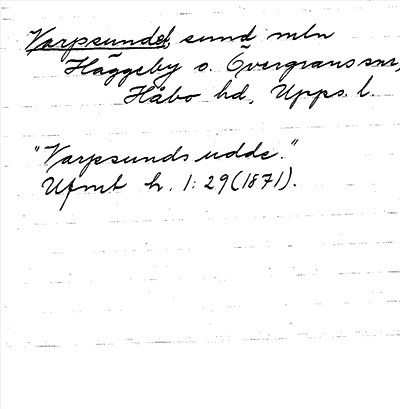 Varpsundet, sund mln
Häggeby o. Övergrans snr,
Håbo hd, Upps. l.
"Varpsunds udde."
Ufmt h. 1: 29 (1871).